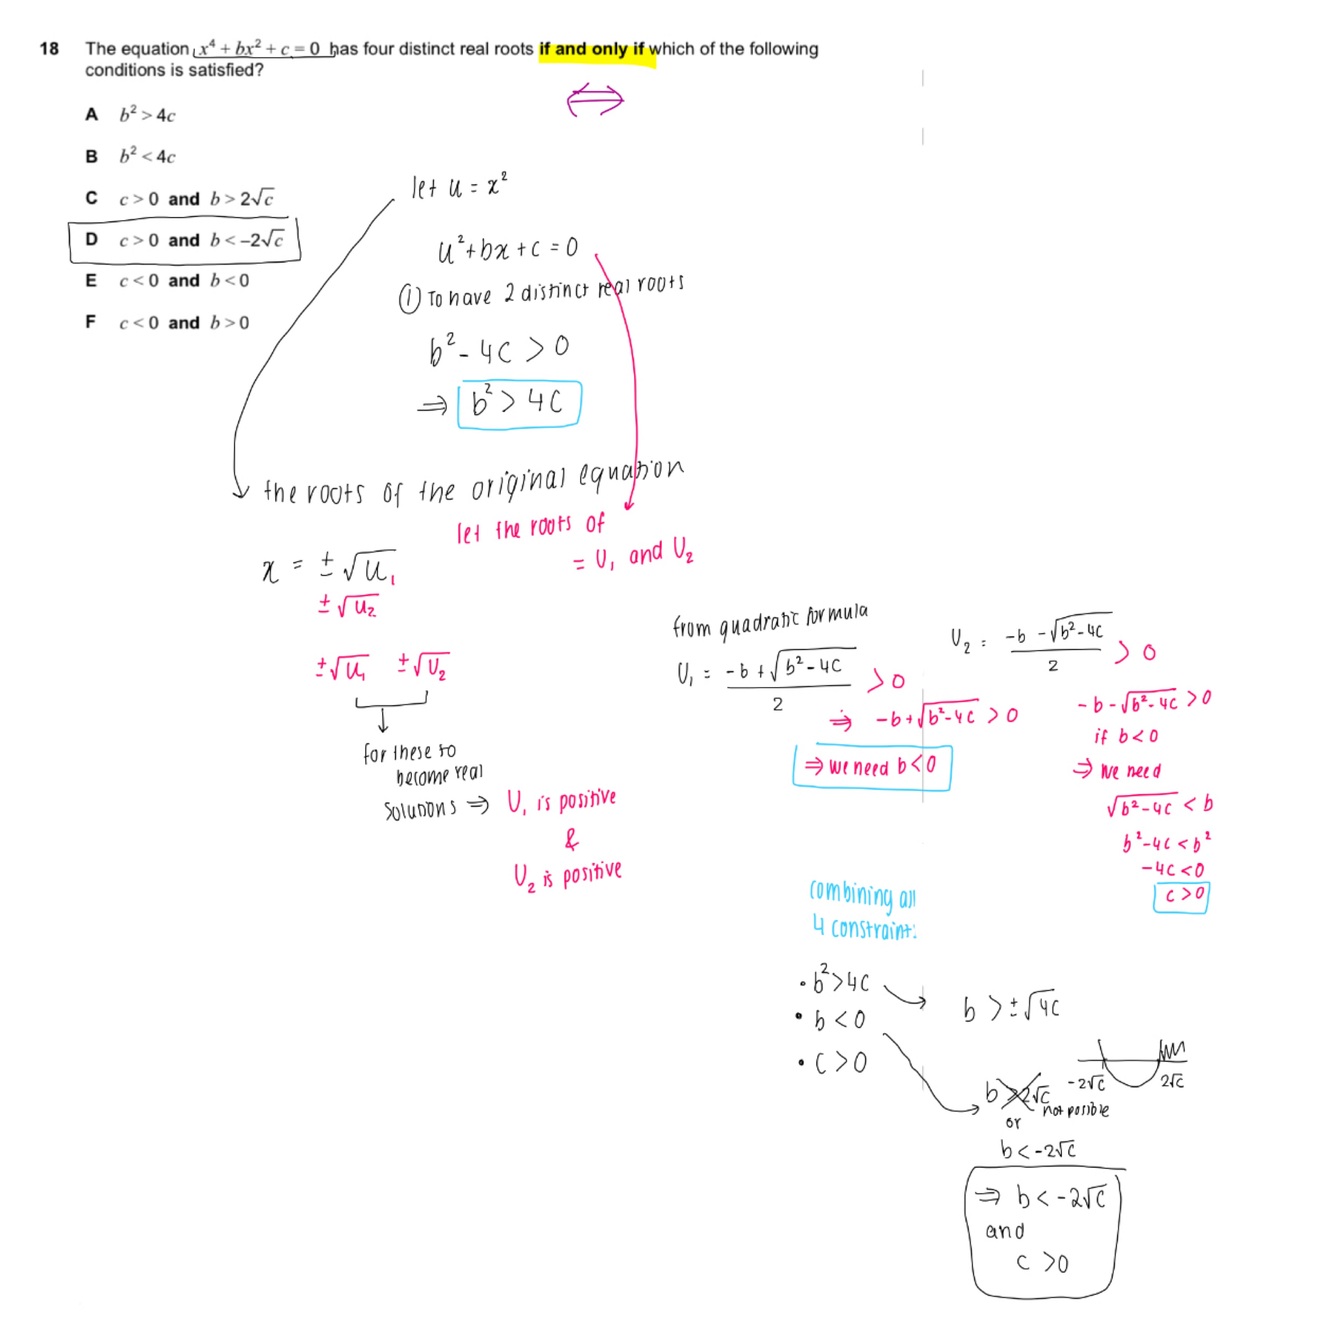 18 The equation x⁴ + bx² + c = 0 has four distinct real roots if and only if which of the following
conditions is satisfied?
A b² > 4c
B b² < 4c
C c > 0 and b > 2√c
D c > 0 and b < −2√c
E c < 0 and b < 0
F c < 0 and b > 0
⟺
let u = x²
u² + bx + c = 0
① To have 2 distinct real roots
b² − 4c > 0
⇒ b² > 4c
the roots of the original equation
let the roots of
= U₁ and U₂
x = ±√u₁
±√u₂
±√u₁ ±√U₂
for these to
become real
solutions ⇒ U₁ is positive
&
U₂ is positive
from quadratic formula
U₁ = (−b + √(b²−4c))/2 > 0
⇒ −b + √(b²−4c) > 0
⇒ we need b < 0
U₂ = (−b − √(b²−4c))/2 > 0
−b − √(b²−4c) > 0
if b < 0
⇒ we need
√(b²−4c) < b
b² − 4c < b²
−4c < 0
c > 0
combining all
4 constraint:
• b² > 4c
• b < 0
• c > 0
b > ±√4c
−2√c 2√c
b > 2√c not posible
or
b < −2√c
⇒ b < −2√c
and
c > 0